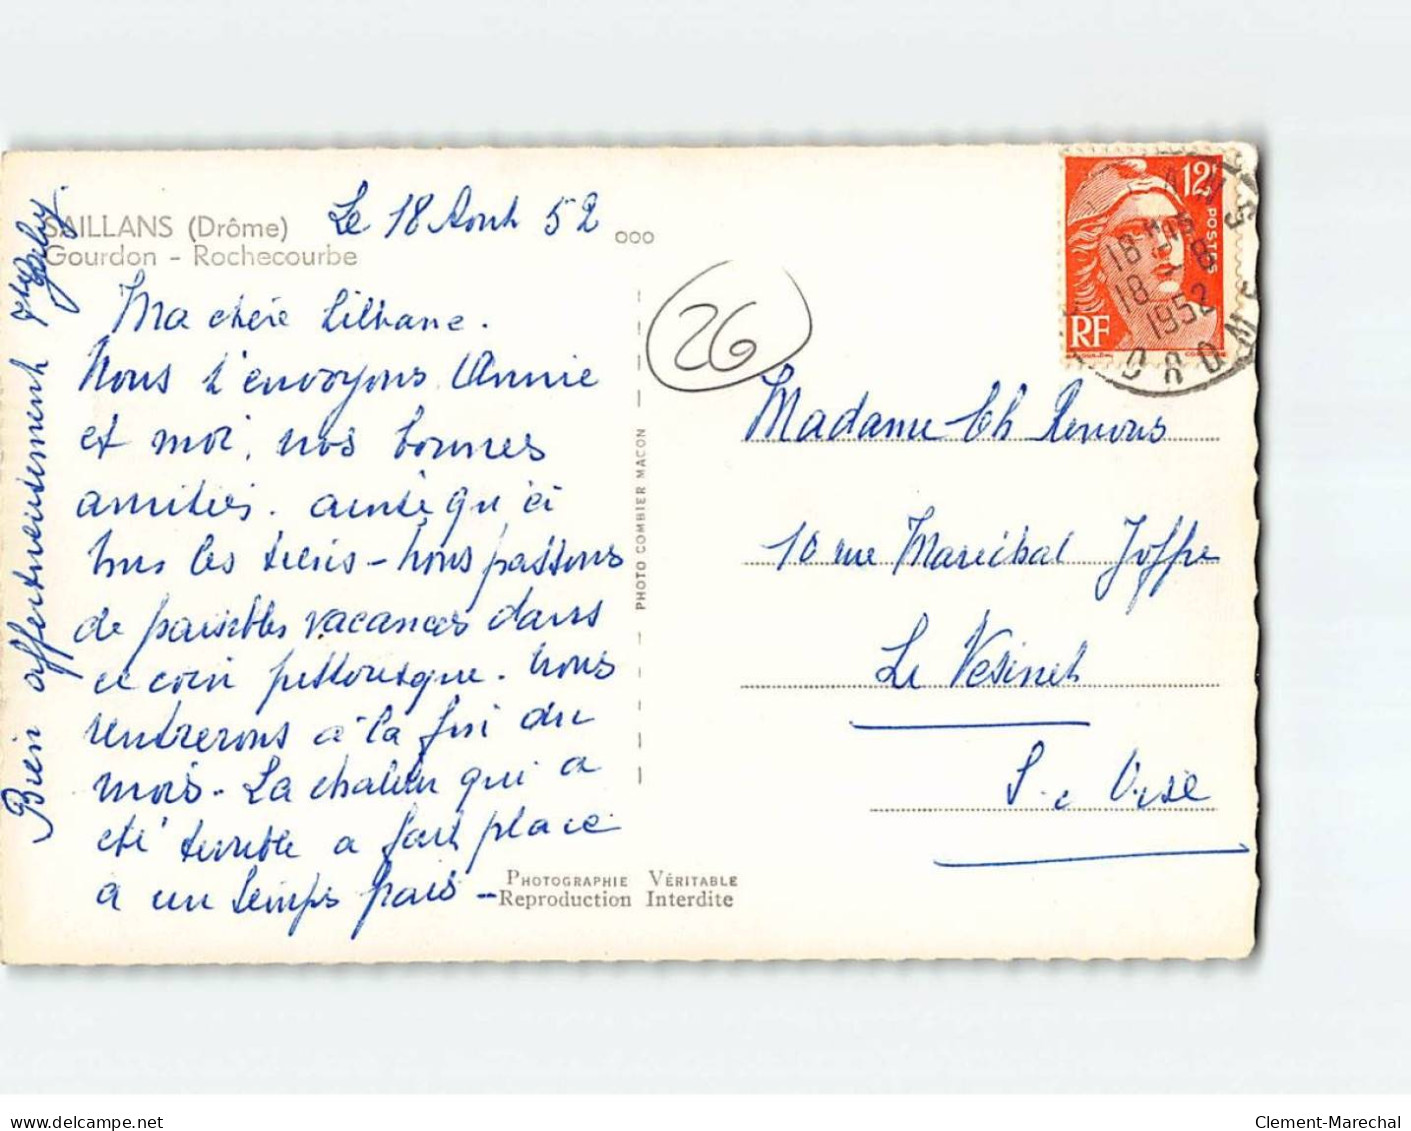 SAILLANS (Drôme)
Gourdon - Rochecourbe
Le 18 Aout 52
Ma chère Liliane.
Nous t'envoyons Annie
et moi, nos bonnes
amitiés. ainsi qu'ci
tous les tiens - Nous passons
de paisibles vacances dans
ce coin pittoresque. Nous
rentrerons à la fin du
mois - La chaleur qui a
été terrible a fait place
a un temps frais -
Bien affectueusement
26
PHOTO COMBIER MACON
PHOTOGRAPHIE VÉRITABLE
Reproduction Interdite
12F
POSTES
RF
18 - 8
1952
DROME
Madame Ch Renous
10 rue Maréchal Joffre
Le Vesinet
S. e Oise
delcampe.net
Clement-Marechal